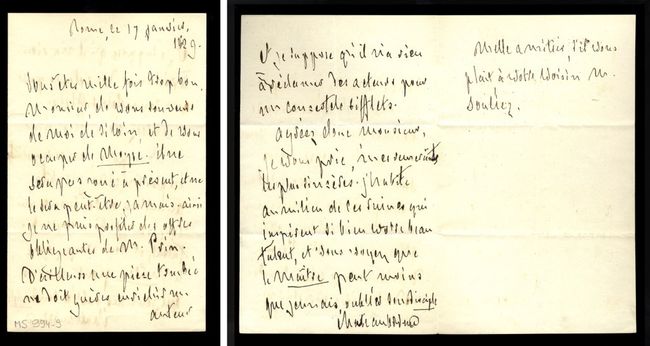 Rome, ce 17 janvier,
1829.
Vous êtes mille fois trop bon,
Monsieur, de vous souvenir
de moi de si loin, et de vous
occuper de Moyse. il ne
sera pas joué à présent, et ne
le sera peut-être, jamais. ainsi
je ne puis profiter des offres
obligeantes de M.
D'ailleurs une pièce tombée
ne doit guères enrichir un
auteur
MS 294-9
et je suppose qu'il n'a rien
à redonner des acteurs pour
un concert de sifflets.
agréez donc Monsieur,
je vous prie, mes remerciements
les plus sincères. j'habite
au milieu de ces ruines qui
inspirent si bien votre beau
talent, et vous voyez que
le Maître peut moins
que jamais oublier son disciple
Chateaubriand
Mille amitiés, s'il vous
plait à votre voisin M.